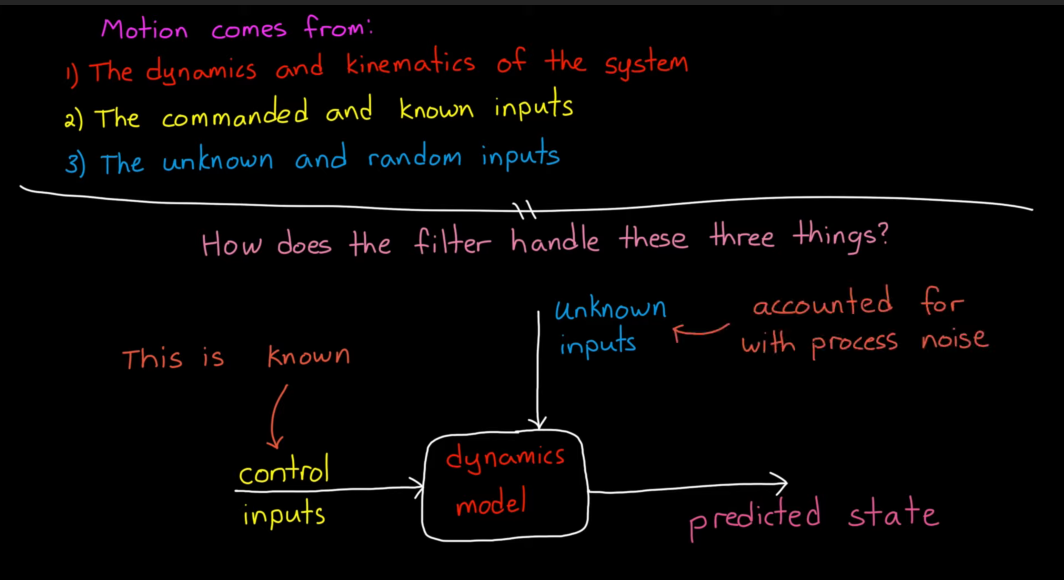 Motion comes from:
1) The dynamics and kinematics of the system
2) The commanded and known inputs
3) The unknown and random inputs
How does the filter handle these three things?
unknown
inputs
accounted for
with process noise
This is known
control
inputs
dynamics
model
predicted state